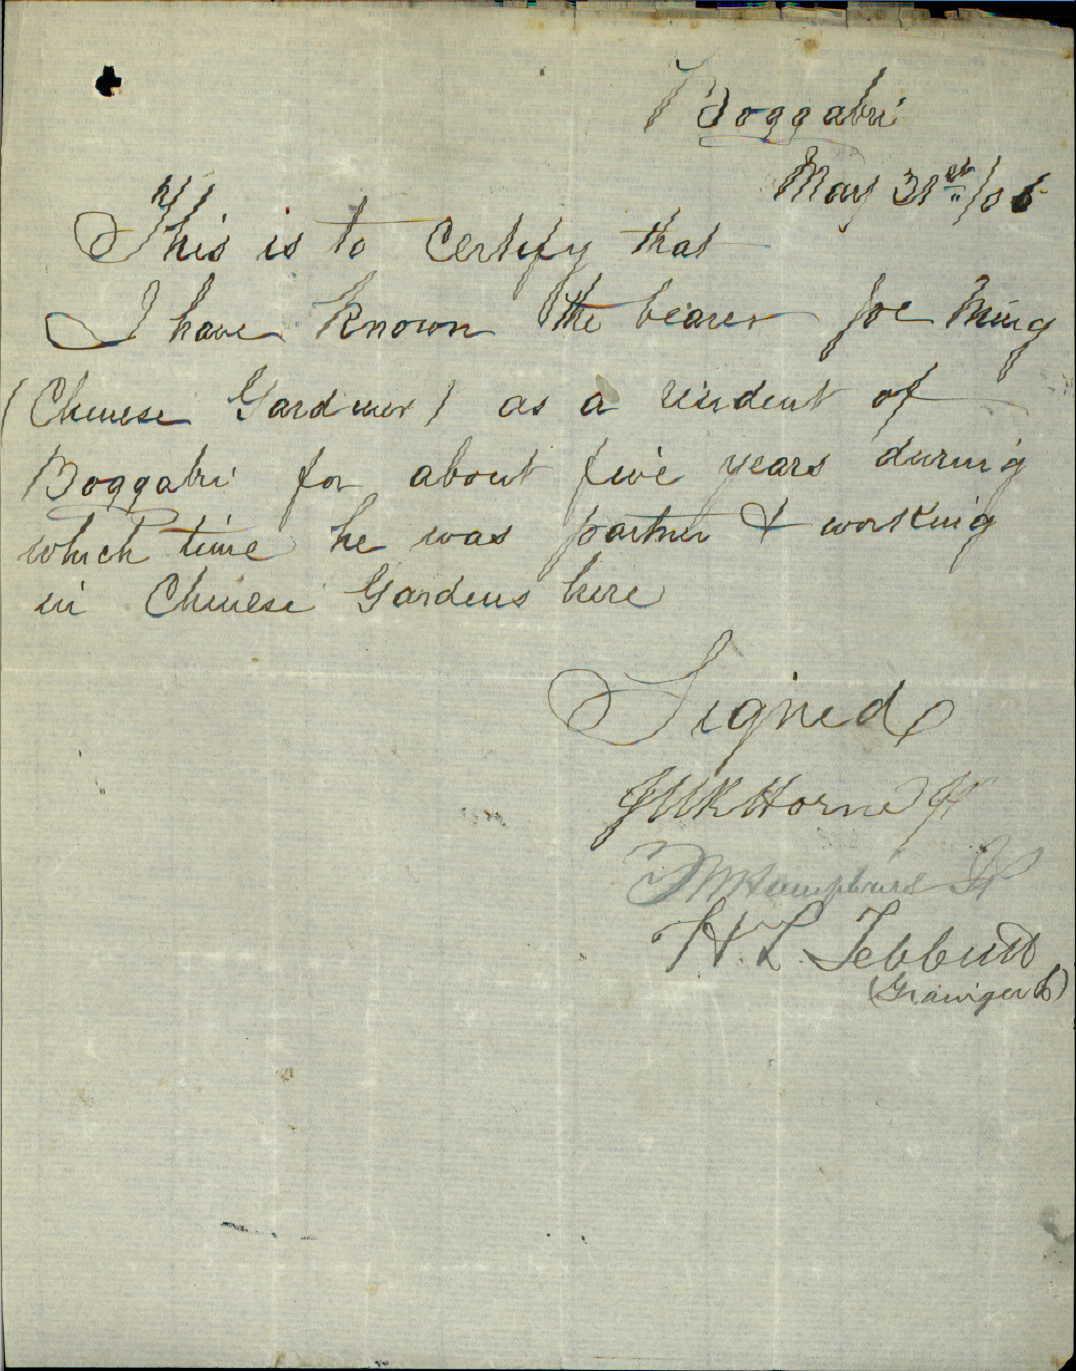 Boggabri
May 31st /06
This is to Certify that
I have known the bearer Joe Ming
(Chinese Gardener) as a resident of
Boggabri for about five years during
which time he was partner & working
in Chinese Gardens here
Signed
Horne JP
Humphries JP
H. L. Tebbutt